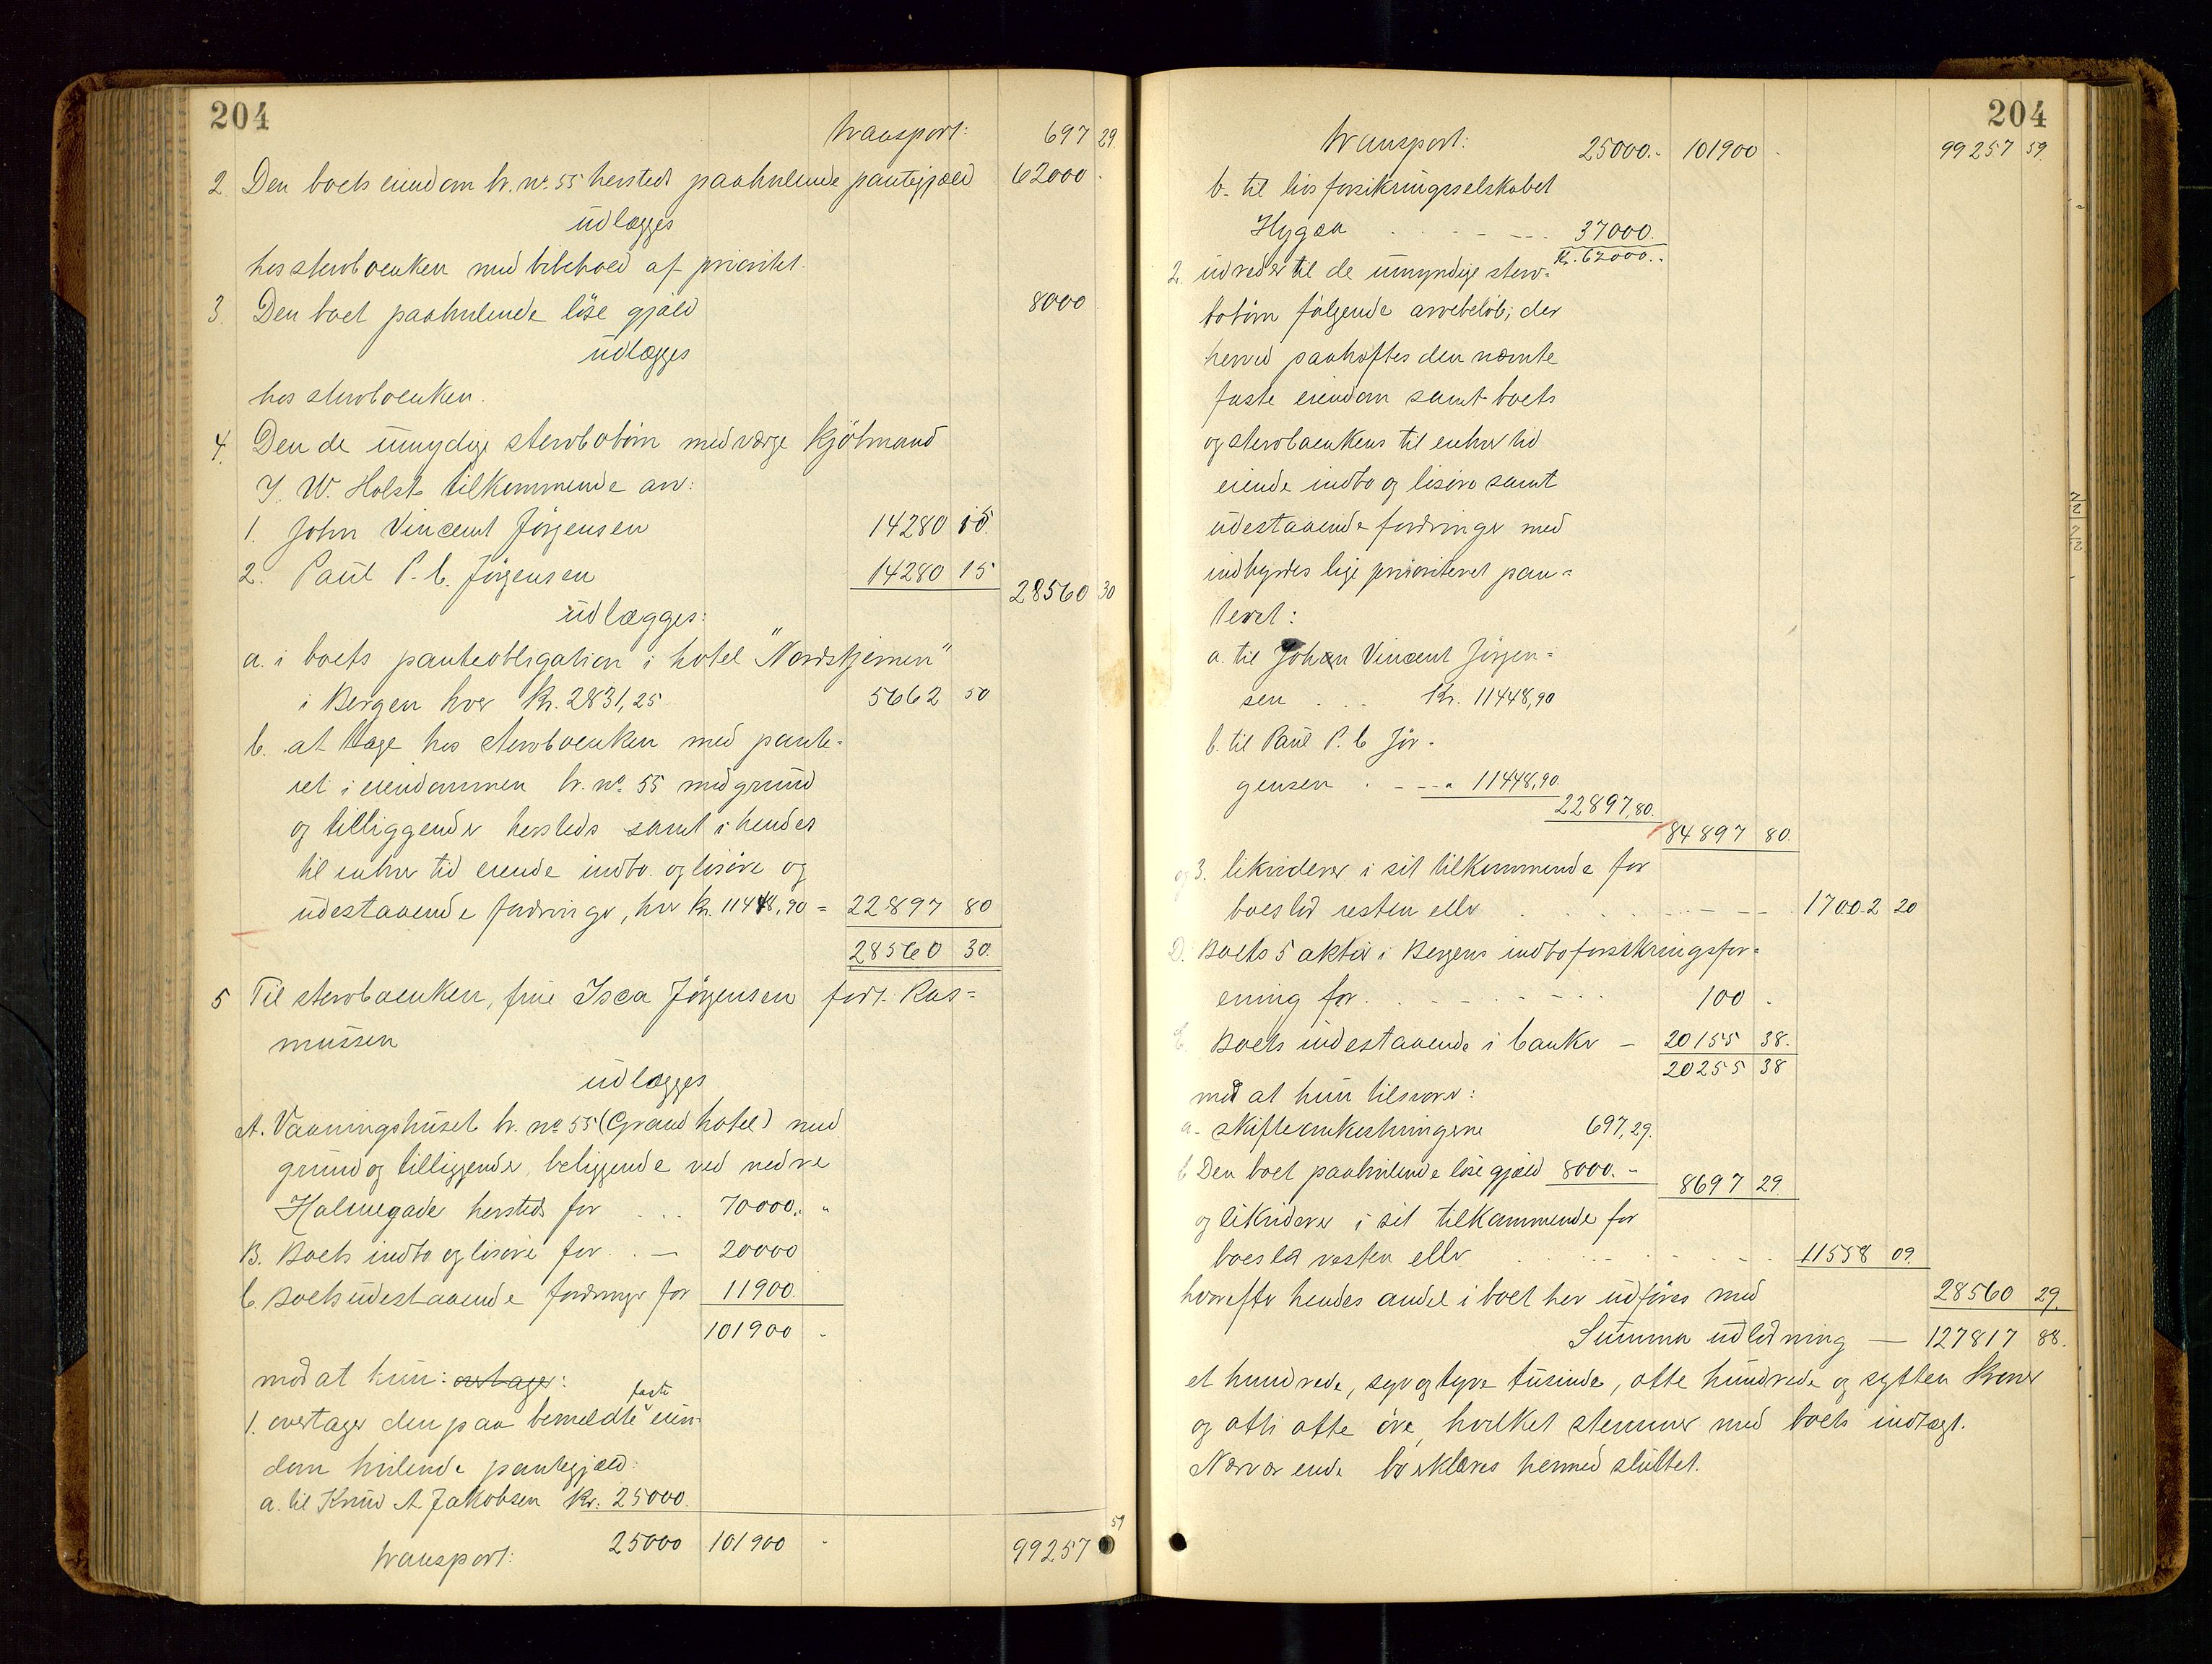 204
transport: 697 29.
2. Den boets eiendom br. nº 55 hersteds paahvilende pantegjæld 62000.
udlægges
hos sterboenken med bibehold af prioritet.
3. Den boet paahvilende löse gjæld 8000.
udlægges
hos sterboenken.
4. Den de umydige sterbobörn med værge kjöbmand
J. W. Holst tilkommende arv:
1. John Vincent Jörgensen 14280 15.
2. Paul P. C. Jörgensen 14280 15
28560 30
udlægges:
a. i boets panteobligation i hotel "Nordstjernen"
i Bergen hver Kr. 2831,25 5662 50
b. at tage hos sterboenken med pante-
ret i eiendommen br. nº 55 med grund
og tilliggender hersteds samt i hendes
til enhver tid eiende indbo og lösöre og
udestaaende fordringer, hver Kr. 11448,90 = 22897 80
28560 30.
5 Til sterboenken, frue Isca Jörgensen født Ras=
mussen
udlægges
A. Vaaningshuset br. nº 55 (Grand hotel) med
grund og tilliggender, beliggende ved nedre
Holmegade hersteds for ... 70000.. "
B. Boets indbo og lösöre for . . — 20000
C. Boets udestaaende fordringer for 11900.
101900 -
mod at hun: overtager:
1. overtager den paa bemeldte faste eien-
dom hvilende pantegjæld:
a. til Knud A Jakobsen Kr. 25000.
transport: 25000 101900 - 99257 59
204
transport: 25000.- 101900 - 99257 59.
b. til livsforsikringsselskabet
Hygæa . . - - --- 37000.
Kr. 62000.-
2. udreder til de umyndige sterv-
bobörn fölgende arvebelöb, der
herved paaheftes den nævnte
faste eiendom samt boets
og sterboenkens til enhver tid
eiende indbo og lösöre samt
udestaaende fordringer med
indbyrdes lige prioriteret pan=
teret:
a. til John Vincent Jörgen=
sen . . . Kr. 11448,90
b. til Paul P. C Jör-
gensen . - --" 11448,90.
22897,80.
84897 80.
og 3. likviderer i sit tilkommende for
boeslod resten eller . . . . . - - -- 17002 20
D. Boets 5 aktier i Bergens indboforsikringsfor=
ening for. . - - . - - - - 100 -
E. Boets indestaaende i banker — 20155 38.
20255 38
mod at hun tilsvarer:
a- skifteomkostningerne 697,29.
b Den boet paahvilende löse gjæld 8000.- 8697 29.
og likviderer i sit tilkommende for
boeslod resten eller . . - - . - - - 11558 09.
hvorefter hendes andel i boet her udföres med 28560 29.
Summa udlodning — 127817 88.
et hundrede, syv og tyve tusinde, otte hundrede og sytten kroner
og otti otte öre, hvilket stemmer med boets indtægt.
Nærværende bo erklæres hermed sluttet.